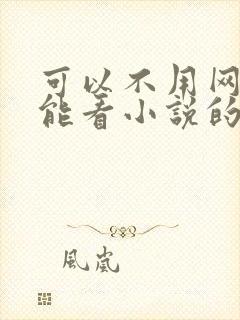 可以不用网
能看小説的
風嵐